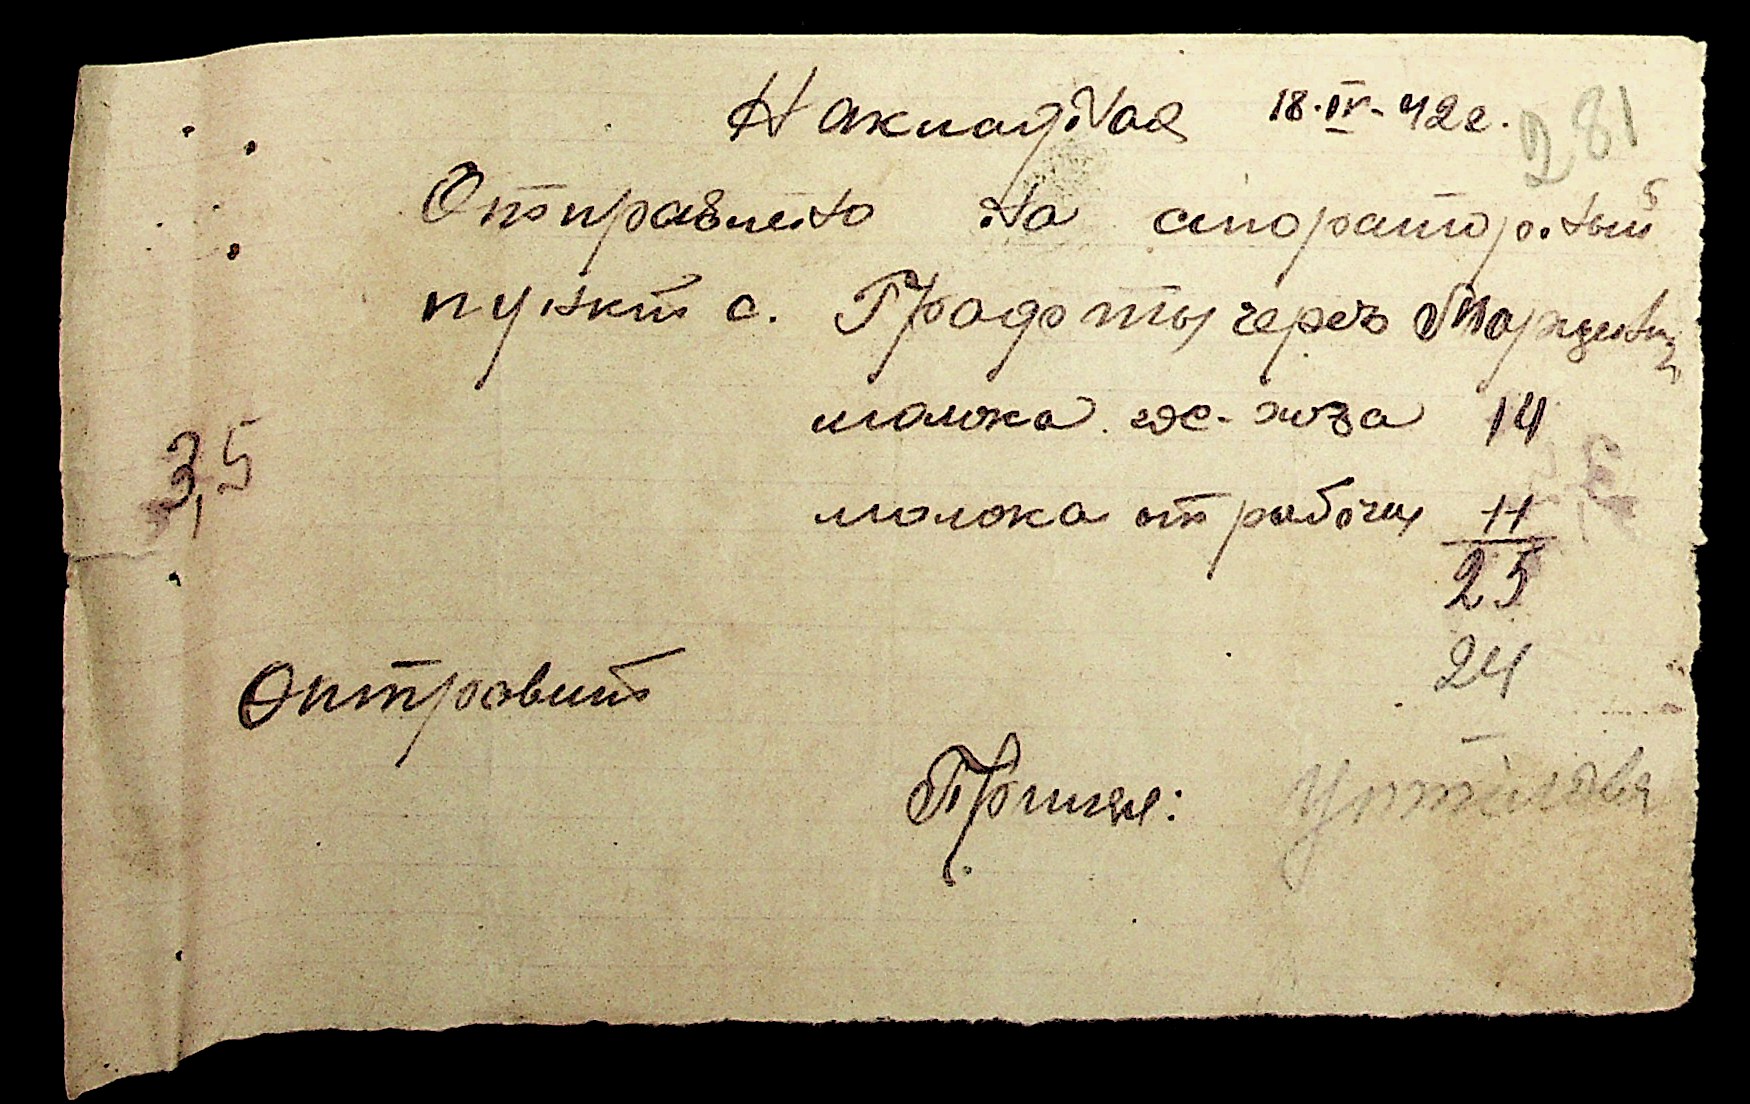 Накладная 18·IV-42г.
281
Отправлено на спораторный
пункт с. Градоты через
молока хоза 14
3,5
молока от рабочих 11
25
24
Отправит
Принял: